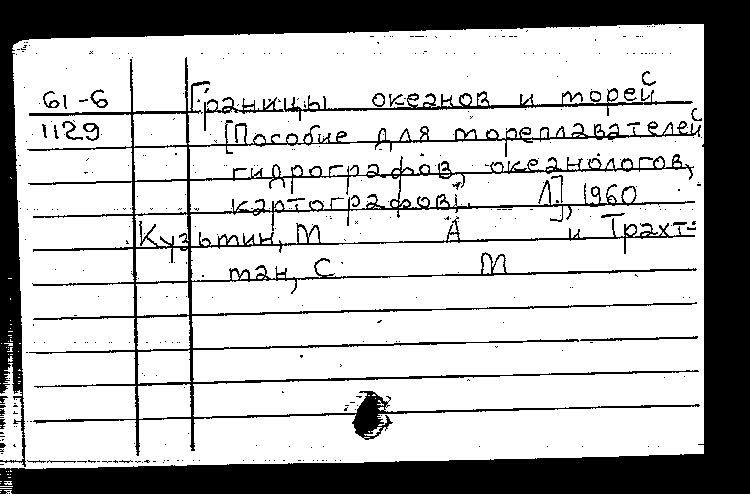 61-6 Границы океанов и морей с
1129 [Пособие для мореплавателей с
гидрографов, океанологов,
картографов]. Л], 1960
Кузьмин, М А и Трахт-
ман, С М